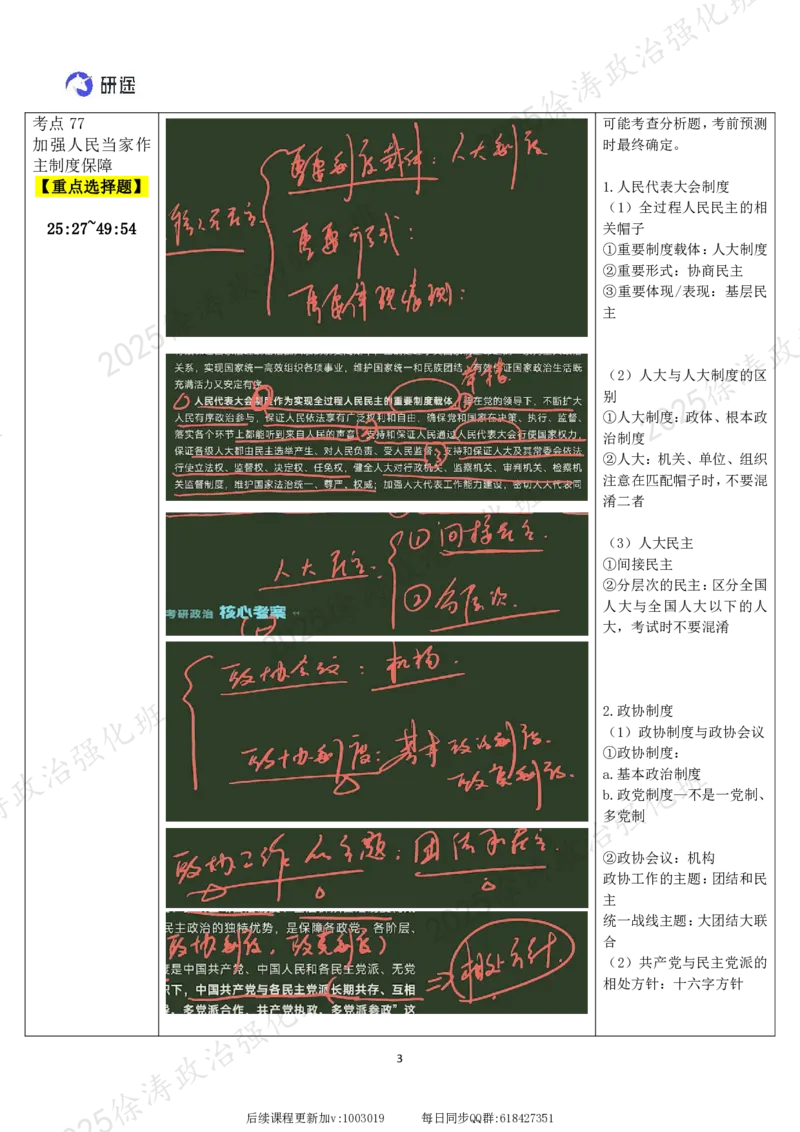 研途
考点 77
加强人民当家作
主制度保障
【重点选择题】
25:27~49:54
重要制度载体：人大制度
全过程人民民主
重要形式：
重要体现/表现：
关系，实现国家统一高效组织各项事业，维护国家统一和民族团结，有效保证国家政治生活既
充满活力又安定有序。
人民代表大会制度作为实现全过程人民民主的重要制度载体，要在党的领导下，不断扩大
人民有序政治参与，保证人民依法享有广泛权利和自由，确保党和国家在决策、执行、监督、
落实各个环节上都能听到来自人民的声音。支持和保证人民通过人民代表大会行使国家权力，
保证各级人大都由民主选举产生、对人民负责、受人民监督。支持和保证人大及其常委会依法
行使立法权、监督权、决定权、任免权，健全人大对行政机关、监察机关、审判机关、检察机
关监督制度，维护国家法治统一、尊严、权威；加强人大代表工作能力建设，密切人大代表同
人大民主：
①间接民主.
②分层次.
考研政治 核心考案
政协会议：机构.
政协制度：基本政治制度.
政党制度.
政协工作的主题：团结和民主.
民主政治的独特优势，是保障各政党、各阶层、
政协制度，政党制度
是中国共产党、中国人民和各民主党派、无党
下，中国共产党与各民主党派长期共存、互相
多党派合作，共产党执政、多党派参政”这
相处方针.
可能考查分析题，考前预测
时最终确定。
1.人民代表大会制度
（1）全过程人民民主的相
关帽子
①重要制度载体：人大制度
②重要形式：协商民主
③重要体现/表现：基层民
主
（2）人大与人大制度的区
别
①人大制度：政体、根本政
治制度
②人大：机关、单位、组织
注意在匹配帽子时，不要混
淆二者
（3）人大民主
①间接民主
②分层次的民主：区分全国
人大与全国人大以下的人
大，考试时不要混淆
2.政协制度
（1）政协制度与政协会议
①政协制度：
a.基本政治制度
b.政党制度—不是一党制、
多党制
②政协会议：机构
政协工作的主题：团结和民
主
统一战线主题：大团结大联
合
（2）共产党与民主党派的
相处方针：十六字方针
3
后续课程更新加v:1003019 每日同步QQ群:618427351
2025徐涛政治强化班